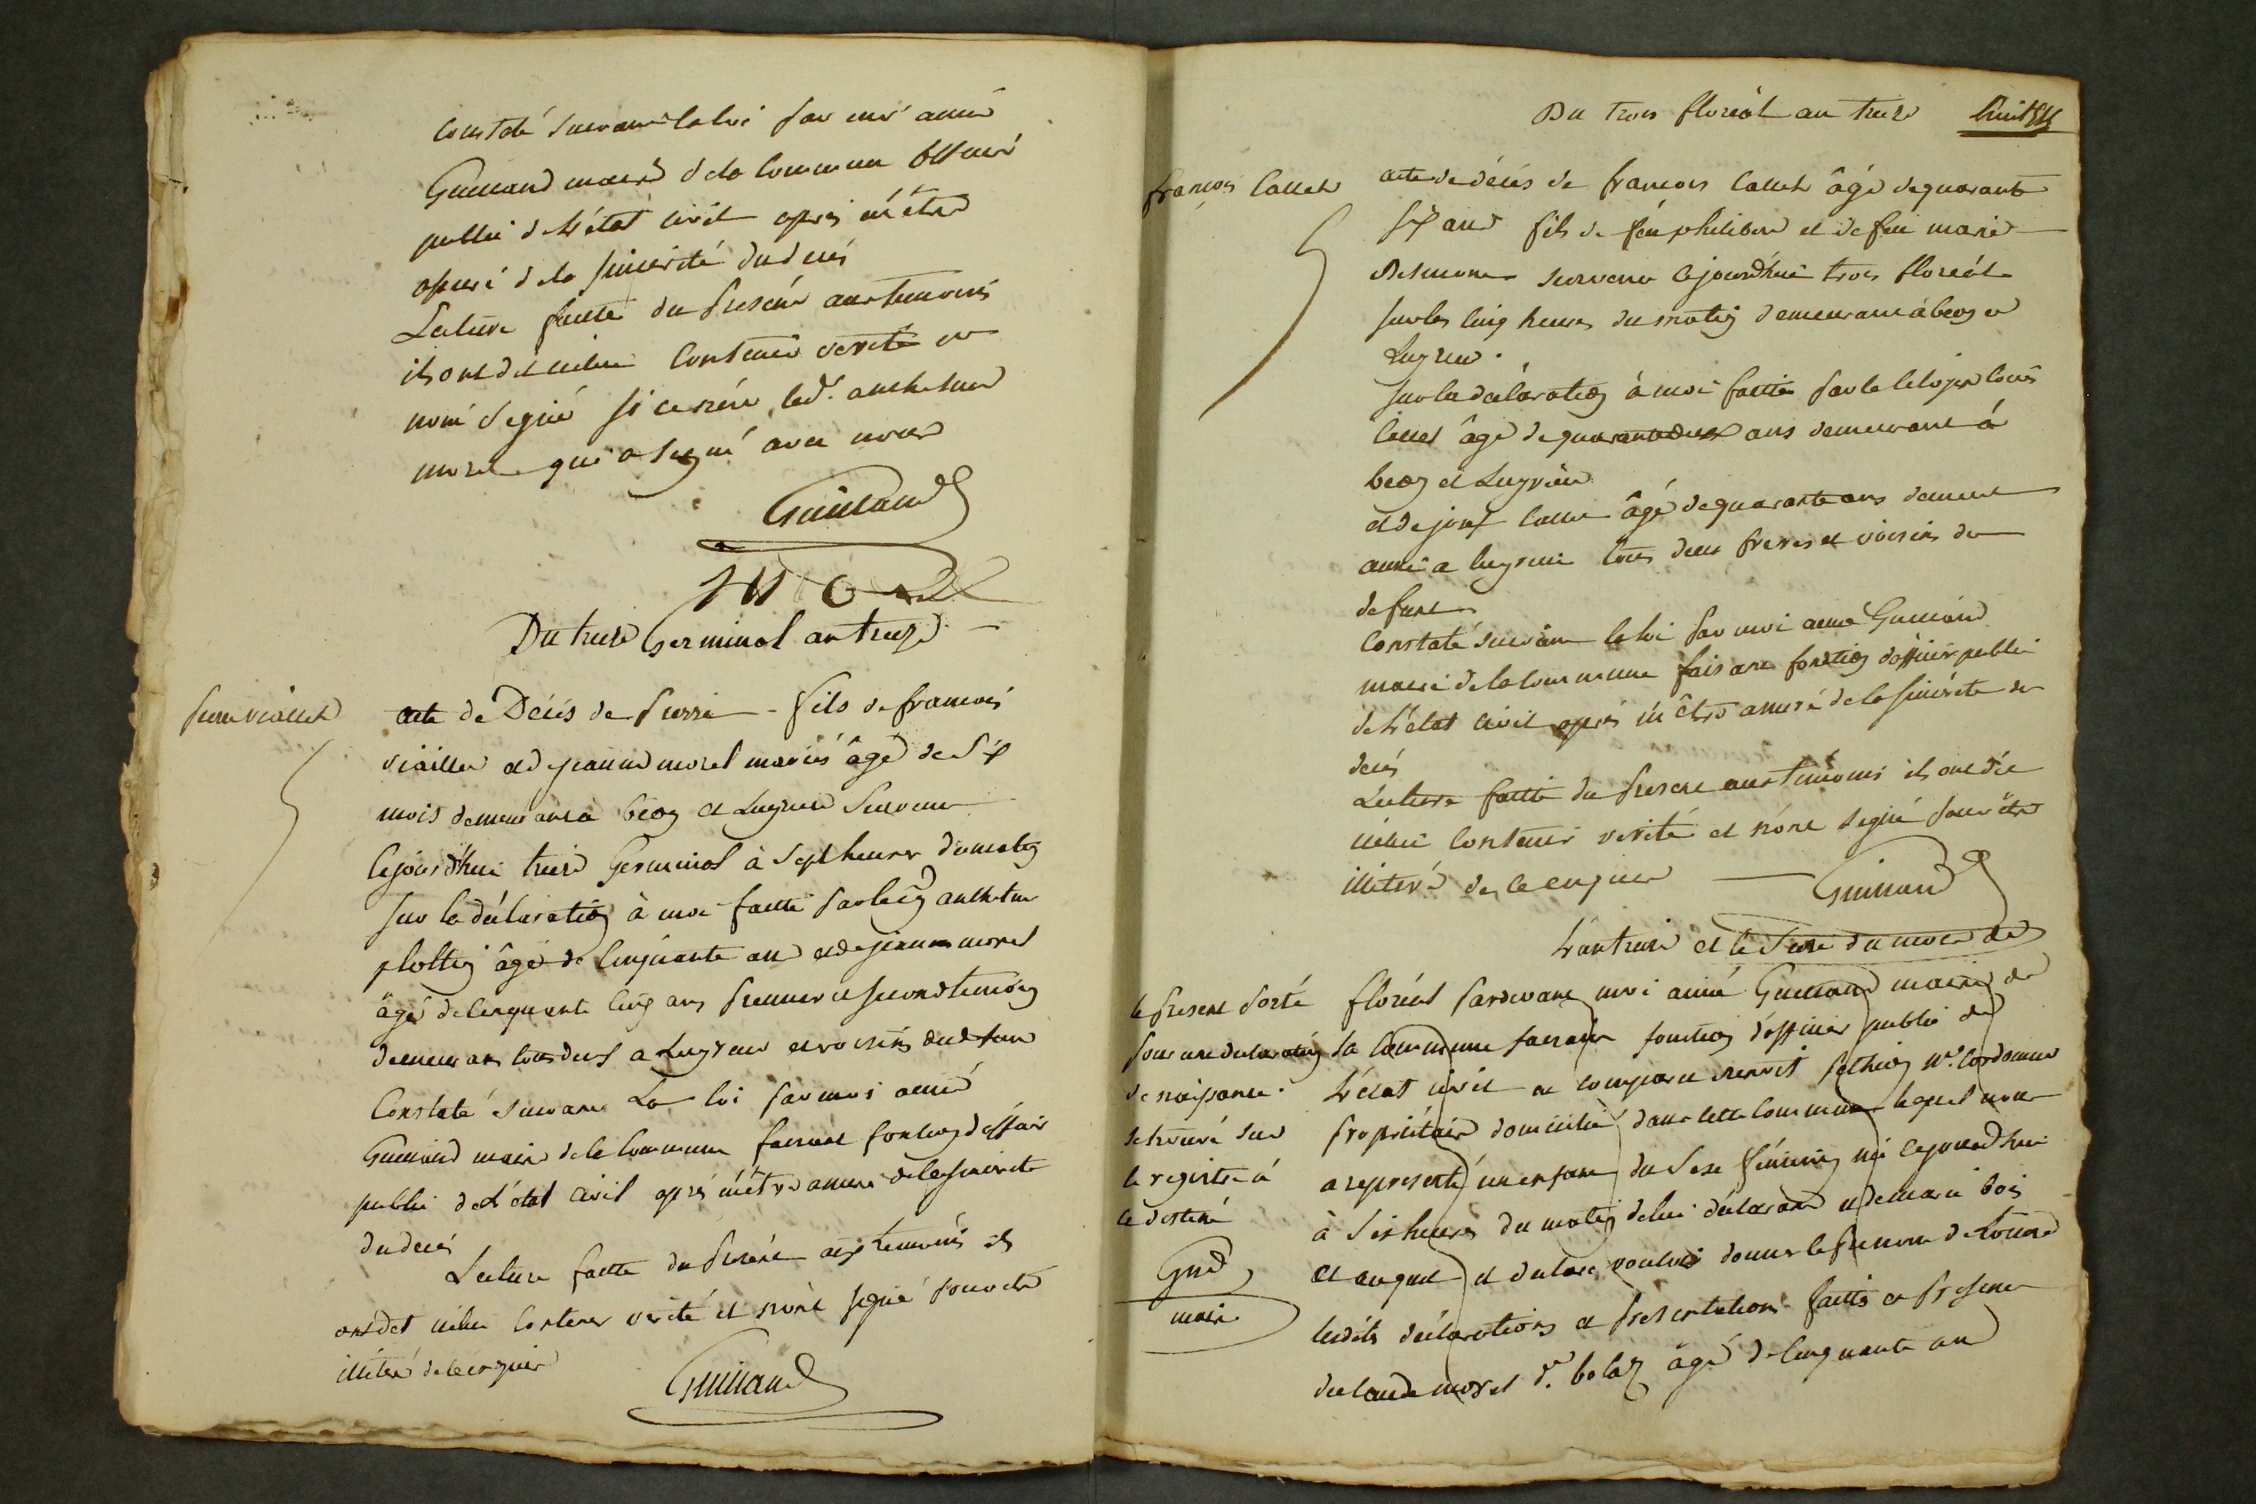 Constaté suivant la loi par moi aimé
Guilland maire de la commune officier
public de l'état civil apres m'être
assuré de la sincerité du deces
Lecture faitte du present aux temoins
ils ont dit icelui contenir verité et
nont signé si ce n'est led. anthelme
morel qui a signé avec nous
Guilland
morel
Du treize Germinal an treize
pierre viallet
acte de Décés de pierre fils de francois
viallet et de jeanne morel mariés âgé de six
mois demeurant à beon et Luyrieu survenu
cejourd'hui treize Germinal à sept heures du matin
sur la déclaration à moi faitte par le cy anthelme
âgé de cinquante an et de jeanne morel
âgé de cinquante cinq ans premier et second temoin
demeurans tous deux a Luyrieu et voisins du defunt
Constaté suivant La loi par moi aimé
Guilland maire de la Commune faisant fonction d'officier
public de L'état Civil aprés m'être assuré de la sincerite
du decés
Lecture faitte du present aux temoins ils
ont dit icelui contenir verité et n'ont signé pour être
illiteré de ce enquis
Guilland
Du trois floréal an treize
huit
françois Callet
acte de décés de francois Callet âgé de quarante
six ans fils de feu philibert et de feu marie
survenu cejourd'hui trois floréal
sur les cinq heures du matin demeurant à beon et
Luyrieu.
sur la déclaration à moi faitte par le louis
Callet âgé de quarante deux ans demeurant à
beon et Luyrieu
et de josep Callet âgé de quarante ans demeur
aussi a luyrieu tous deux freres et voisins du
defunt
Constaté suivant la loi par moi aimé Guilland
maire de la commune faisant fonction d'officier public
de L'état civil aprés m'être assuré de la sincérite du
decés
Lecture faitte du present aux temoins ils ont dit
icelui contenir verité et n'ont signé pour être
illiteré de ce enquis Guilland
L'an treize et le seize du mois de
le present porté
pour une declaration
de naissance
se trouve sur
le registre à
ce destiné
Gud
maire
floréal pardevant moi aimé Guilland maire de
la Commune faisant fonction d'officier public de
L'état civil a comparu benoit
propriétaire domicilié dans cette commune lequel nous
a representé un enfant du sexe féminin né cejourd'hui
à six heures du matin de lui déclarant et de marie
et auquel il declare vouloir donner le prenom de Louise
lesdits déclarations et presentations faitte en presence
de claude morel d. bolaz âgé de cinquante an